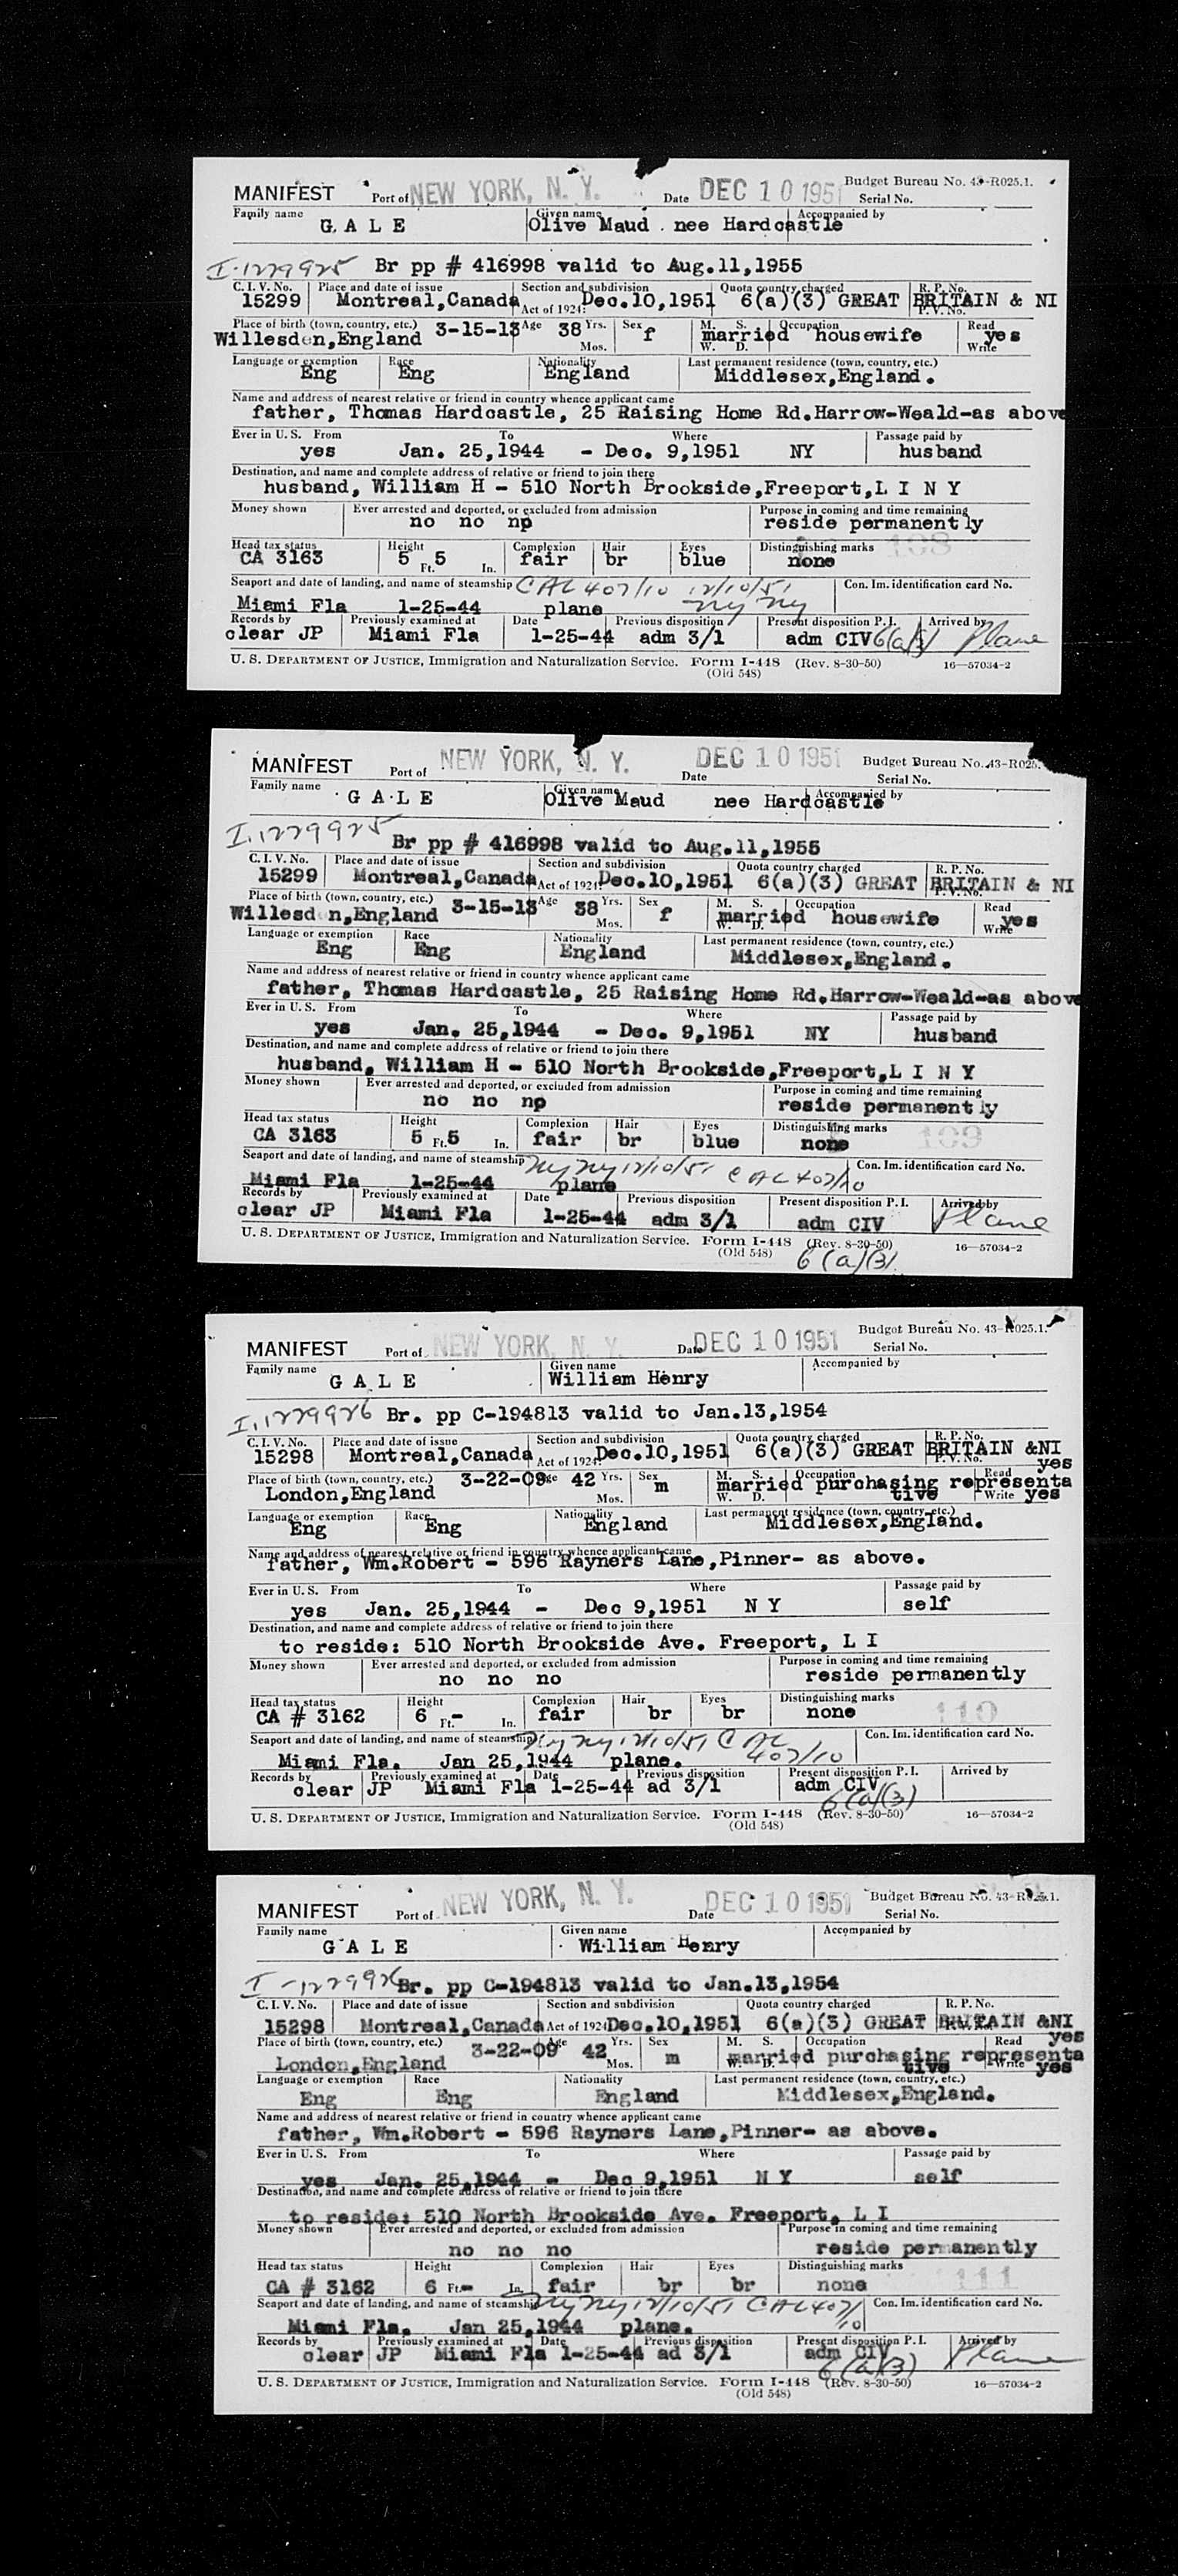 MANIFEST Port of NEW YORK, N. Y. Date DEC 10 1951 Budget Bureau No. 43-R025.1.
Serial No.
Family name Given name Accompanied by
G A L E Olive Maud nee Hardcastle
I-1279925 Br pp # 416998 valid to Aug.11,1955
C. I. V. No. Place and date of issue Section and subdivision Quota country charged R. P. No.
15299 Montreal,Canada Act of 1924: Dec.10,1951 6(a)(3) GREAT BRITAIN & NI
P. V. No.
Place of birth (town, country, etc.) 3-15-13 Age 38 Yrs. Sex f M. S. married Occupation housewife Read yes
Willesden,England Mos. W. D. Write
Language or exemption Race Nationality Last permanent residence (town, country, etc.)
Eng Eng England Middlesex,England.
Name and address of nearest relative or friend in country whence applicant came
father, Thomas Hardcastle, 25 Raising Home Rd.Harrow-Weald-as above
Ever in U. S. From To Where Passage paid by
yes Jan. 25,1944 - Dec. 9,1951 NY husband
Destination, and name and complete address of relative or friend to join there
husband, William H - 510 North Brookside,Freeport,L I N Y
Money shown Ever arrested and deported, or excluded from admission Purpose in coming and time remaining
no no no reside permanently
Head tax status Height Complexion Hair Eyes Distinguishing marks 108
CA 3163 5 Ft. 5 In. fair br blue none
Seaport and date of landing, and name of steamship CAL 407/10 12/10/51 Con. Im. identification card No.
Miami Fla 1-25-44 plane NY NY
Records by Previously examined at Date Previous disposition Present disposition P. I. Arrived by
clear JP Miami Fla 1-25-44 adm 3/1 adm CIV 6(a)(3) Plane
U. S. DEPARTMENT OF JUSTICE, Immigration and Naturalization Service. Form I-448 (Rev. 8-30-50) 16—57034-2
(Old 548)
MANIFEST Port of NEW YORK, N. Y. Date DEC 10 1951 Budget Bureau No. 43-R025.
Serial No.
Family name Given name Accompanied by
G A L E Olive Maud nee Hardcastle
I-1279925 Br pp # 416998 valid to Aug.11,1955
C. I. V. No. Place and date of issue Section and subdivision Quota country charged R. P. No.
15299 Montreal,Canada Act of 1924: Dec.10,1951 6(a)(3) GREAT BRITAIN & NI
P. V. No.
Place of birth (town, country, etc.) 3-15-13 Age 38 Yrs. Sex f M. S. married Occupation housewife Read yes
Willesden,England Mos. W. D. Write
Language or exemption Race Nationality Last permanent residence (town, country, etc.)
Eng Eng England Middlesex,England.
Name and address of nearest relative or friend in country whence applicant came
father, Thomas Hardcastle, 25 Raising Home Rd.Harrow-Weald-as above
Ever in U. S. From To Where Passage paid by
yes Jan. 25,1944 - Dec. 9,1951 NY husband
Destination, and name and complete address of relative or friend to join there
husband, William H - 510 North Brookside,Freeport,L I N Y
Money shown Ever arrested and deported, or excluded from admission Purpose in coming and time remaining
no no no reside permanently
Head tax status Height Complexion Hair Eyes Distinguishing marks 109
CA 3163 5 Ft. 5 In. fair br blue none
Seaport and date of landing, and name of steamship NY NY 12/10/51 CAL 407/10 Con. Im. identification card No.
Miami Fla 1-25-44 plane
Records by Previously examined at Date Previous disposition Present disposition P. I. Arrived by
clear JP Miami Fla 1-25-44 adm 3/1 adm CIV Plane
U. S. DEPARTMENT OF JUSTICE, Immigration and Naturalization Service. Form I-448 (Rev. 8-30-50) 16—57034-2
(Old 548) 6(a)(3)
MANIFEST Port of NEW YORK, N. Y. Date DEC 10 1951 Budget Bureau No. 43-R025.1.
Serial No.
Family name Given name Accompanied by
G A L E William Henry
I-1279926 Br. pp C-194813 valid to Jan.13,1954
C. I. V. No. Place and date of issue Section and subdivision Quota country charged R. P. No.
15298 Montreal,Canada Act of 1924: Dec.10,1951 6(a)(3) GREAT BRITAIN &NI
P. V. No. yes
Place of birth (town, country, etc.) 3-22-09 Age 42 Yrs. Sex m M. S. married Occupation purchasing representa Read
London,England Mos. W. D. tive Write yes
Language or exemption Race Nationality Last permanent residence (town, country, etc.)
Eng Eng England Middlesex,England.
Name and address of nearest relative or friend in country whence applicant came
father, Wm.Robert - 596 Rayners Lane,Pinner- as above.
Ever in U. S. From To Where Passage paid by
yes Jan. 25,1944 - Dec 9,1951 N Y self
Destination, and name and complete address of relative or friend to join there
to reside: 510 North Brookside Ave. Freeport, L I
Money shown Ever arrested and deported, or excluded from admission Purpose in coming and time remaining
no no no reside permanently
Head tax status Height Complexion Hair Eyes Distinguishing marks 110
CA # 3162 6 Ft. - In. fair br br none
Seaport and date of landing, and name of steamship NY NY 12/10/51 CAL 407/10 Con. Im. identification card No.
Miami Fla. Jan 25,1944 plane.
Records by Previously examined at Date Previous disposition Present disposition P. I. Arrived by
clear JP Miami Fla 1-25-44 ad 3/1 adm CIV 6(a)(3)
U. S. DEPARTMENT OF JUSTICE, Immigration and Naturalization Service. Form I-448 (Rev. 8-30-50) 16—57034-2
(Old 548)
MANIFEST Port of NEW YORK, N. Y. Date DEC 10 1951 Budget Bureau No. 43-R025.1.
Serial No.
Family name Given name Accompanied by
G A L E William Henry
I-1279926 Br. pp C-194813 valid to Jan.13,1954
C. I. V. No. Place and date of issue Section and subdivision Quota country charged R. P. No.
15298 Montreal,Canada Act of 1924: Dec.10,1951 6(a)(3) GREAT BRITAIN &NI
Place of birth (town, country, etc.) 3-22-09 Age 42 Yrs. Sex m M. S. married Occupation purchasing representa Read yes
London,England Mos. W. D. tive Write yes
Language or exemption Race Nationality Last permanent residence (town, country, etc.)
Eng Eng England Middlesex,England.
Name and address of nearest relative or friend in country whence applicant came
father, Wm.Robert - 596 Rayners Lane,Pinner- as above.
Ever in U. S. From To Where Passage paid by
yes Jan. 25,1944 - Dec 9,1951 N Y self
Destination, and name and complete address of relative or friend to join there
to reside: 510 North Brookside Ave. Freeport, L I
Money shown Ever arrested and deported, or excluded from admission Purpose in coming and time remaining
no no no reside permanently
Head tax status Height Complexion Hair Eyes Distinguishing marks 111
CA # 3162 6 Ft. - In. fair br br none
Seaport and date of landing, and name of steamship NY NY 12/10/51 CAL 407/10 Con. Im. identification card No.
Miami Fla. Jan 25,1944 plane.
Records by Previously examined at Date Previous disposition Present disposition P. I. Arrived by
clear JP Miami Fla 1-25-44 ad 3/1 adm CIV 6(a)(3) Plane
U. S. DEPARTMENT OF JUSTICE, Immigration and Naturalization Service. Form I-448 (Rev. 8-30-50) 16—57034-2
(Old 548)